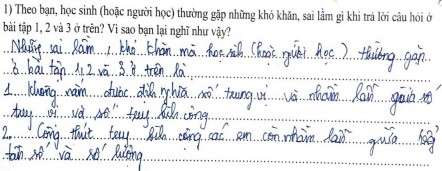 1) Theo bạn, học sinh (hoặc người học) thường gặp những khó khăn, sai lầm gì khi trả lời câu hỏi ở
bài tập 1, 2 và 3 ở trên? Vì sao bạn lại nghĩ như vậy?
Những sai lầm, khó khăn mà học sinh (hoặc người học) thường gặp
ở bài tập 1, 2 và 3 ở trên là
1. Không nắm được định nghĩa số trung vị và nhầm lẫn giữa số
trung vị và số trung bình cộng
2. Công thức trung bình cộng các em còn nhầm lẫn giữa
tần số và số lượng